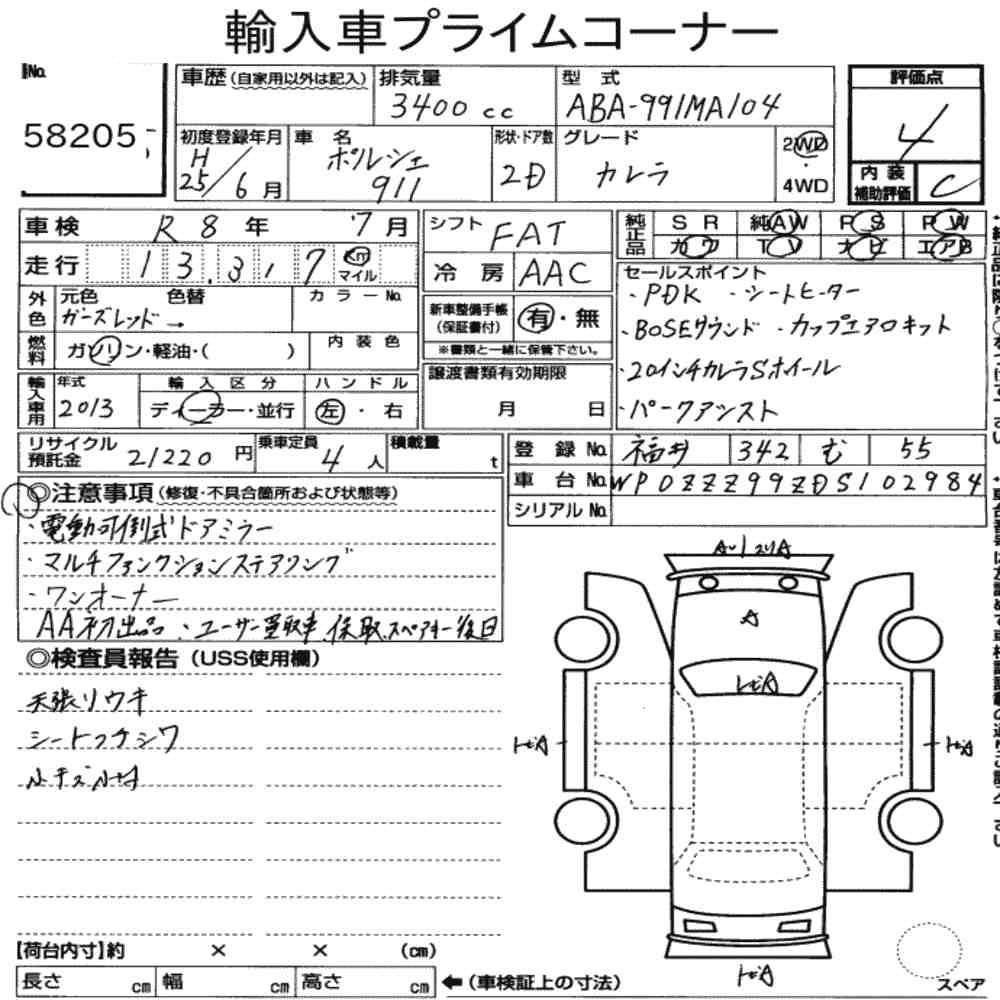 輸入車プライムコーナー
No.
58205
車歴(自家用以外は記入) 排気量 3400cc 型式 ABA-991MA104
初度登録年月 H25/6月 車名 ポルシェ 911 形状・ドア数 2D グレード カレラ 2WD・4WD
評価点 4
内装補助評価 C
車検 R8年 7月 シフト FAT
純正品 SR 純AW PS PW
カワ TV ナビ エアB
走行 133,317 km マイル 冷房 AAC
外色 元色 色替 カラーNo.
ガーズレッド →
新車整備手帳(保証書付) 有・無
※書類と一緒に保管下さい。
燃料 ガソリン・軽油・( ) 内装色
セールスポイント
・PDK ・シートヒーター
・BOSEサウンド ・カップエアロキット
・20インチカレラSホイール
・パークアシスト
輸入車用 年式 2013 輸入区分 ディーラー・並行 ハンドル 左・右
譲渡書類有効期限 月 日
リサイクル預託金 21220円 乗車定員 4人 積載量 t
登録No. 福井 342 む 55
車台No. WP0ZZZ99ZDS102984
シリアルNo.
◎注意事項(修復・不具合箇所および状態等)
・電動可倒式ドアミラー
・マルチファンクションステアリング
・ワンオーナー
AA初出品・ユーザー買取車、保取、スペアキー後日
◎検査員報告(USS使用欄)
天張リウキ
シート
小キズ小凹
A
A
【荷台内寸】約 × × (cm)
長さ cm 幅 cm 高さ cm ←(車検証上の寸法)
スペア